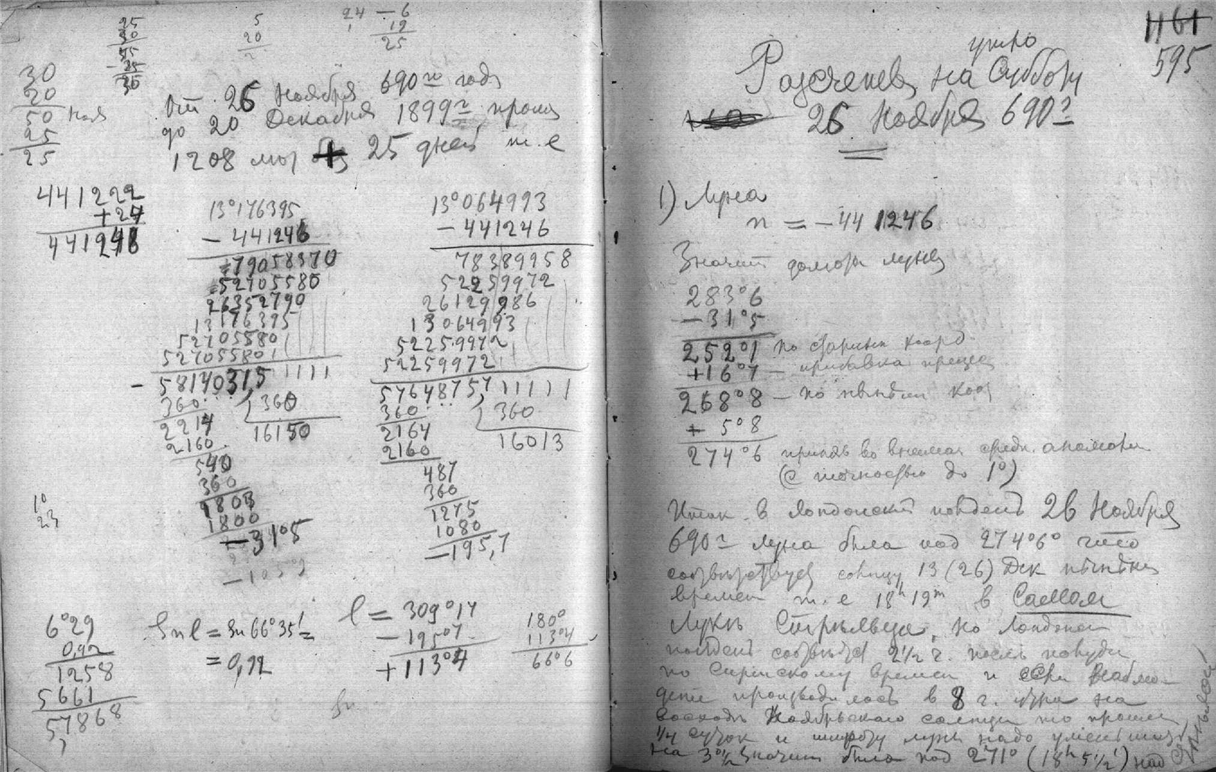 25
30
55
-25
30
5
20
24 - 6
19
25
30
20
50
25
25
от 26 Ноября 690го года
до 20 Декабря 1899го
1208 25 дней т.е
441222
+24
441246
13°176395
- 441246
79058370
52705580
26352790
13176395
52705580
52705580
- 58140315 1111
360
360
2214
16150
2160
540
360
1803
1800
- 31°5
13°064993
- 441246
78389958
52259972
26129986
13064993
52259972
52259972
57648757,11111
360
360
2164
16013
2160
487
360
1275
1080
-195,7
1°
23
6°29
0,92
1258
5661
57868
Sn l = Sn 66°35' =
= 0,92
l = 309°1
- 195°7
+ 113°4
180°
113°4
66°6
1161
595
утро
на Субботу
26 Ноября 690г
1) Луна
n = -441246
Значит долгота луны
283°6
-31°5
252°1 по старым коорд
+16°7 - прибавка прецес
268°8 - по нынѣш коор
+ 5°8
274°6 принявъ во внимание средн. аномалии
(с точностью до 1°)
Итак в Лондонский полдень 26 Ноября
690го Луна была над 274°6 что
соответствует солнцу 13 (26) Дек нынѣшн
времен т.е 18h 19m в Самом
Лукѣ Стрѣльца, но Лондонск
полдень соответствует 2½ ч. после полудн
по Сирийскому времени и если наблюд
дение производилось в 8 г. утра на
восходѣ Ноябрьского солнца то прошли
¼ суток и луны надо уменьшить
на 3°½ значит была над 271° (18h 5½') над